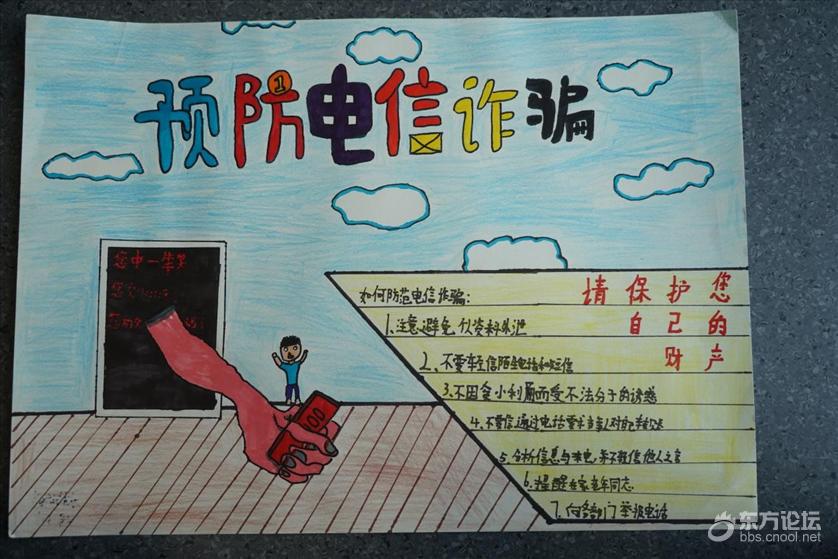 预防电信诈骗
您中一等奖
如何防范电信诈骗：
请保护您
自己的
财产
1.注意避免个人资料外泄
2、不要轻信陌生电话和短信
3.不因贪小利而受不法分子的诱惑
4.不要信通过电话要求
5.分析信息与来电,并不轻信他人之言
6.提醒在家老年同志
7.向各部门举报电话
100
东方论坛
bbs.cnool.net